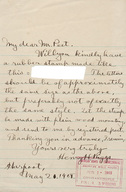 My dear Mr. Post.
Will you kindly have
a rubber stamp made like
this
The letters
should be of approximately
the same size as the above,
but preferably not of exactly
the same style. Let the stamp
be made with plain wood mounting
and send to me by registered post.
Thanking you in advance, I remain,
Yours very truly,
Sherport,
May 20, 1919.